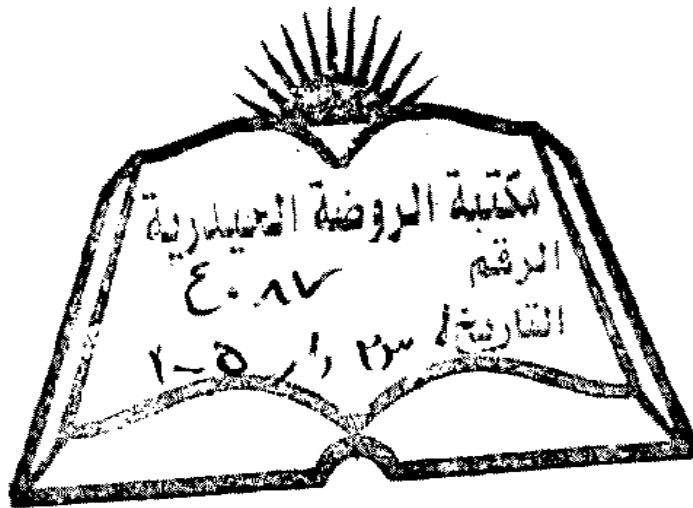 مكتبة الروضة الحيدرية
الرقم ٤٠٨٧
التاريخ